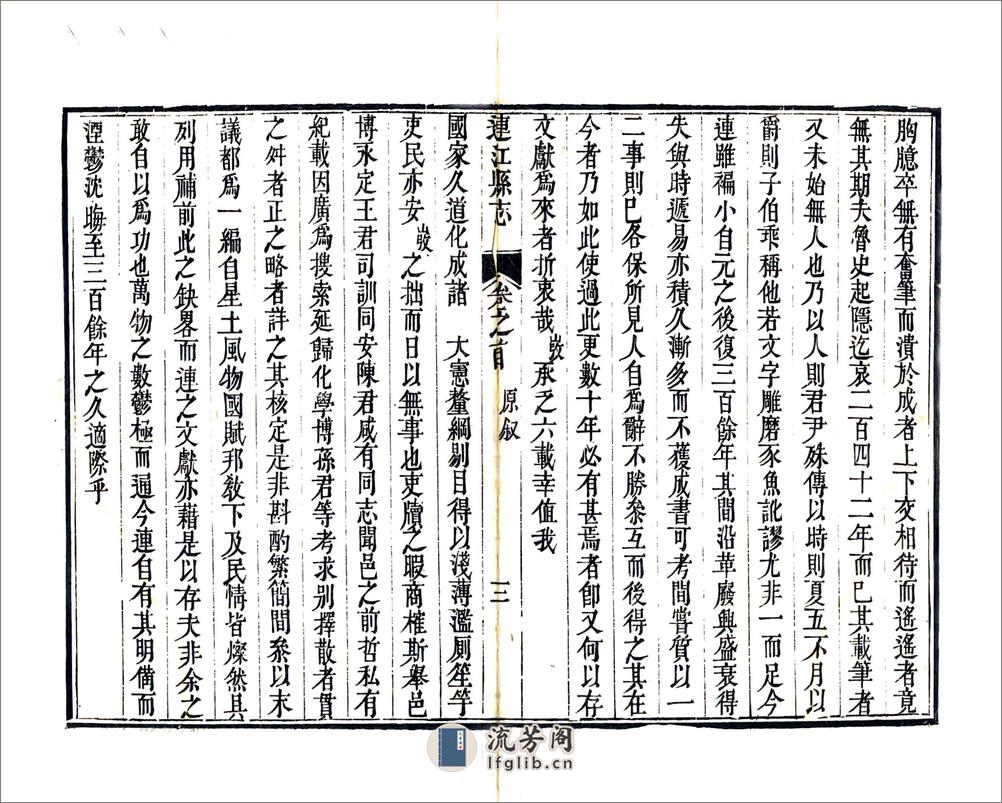 胸臆卒無有奮筆而潰於成者上下交相待而遙遙者竟
無其期夫魯史起隱迄哀二百四十二年而已其載筆者
又未始無人也乃以人則君尹殊傳以時則夏五不月以
爵則子伯乘稱他若文字雕磨豕魚訛謬尤非一而足今
連雖褊小自元之後復三百餘年其間沿革廢興盛衰得
失與時遞易亦積久漸多而不獲成書可考間嘗質以一
二事則已各保所見人自為辭不勝叅互而後得之其在
今者乃如此使過此更數十年必有甚焉者卽又何以存
文獻為來者折衷哉 承乏六載幸值我
連江縣志 卷之首 原叙 三
國家久道化成諸 大憲釐綱剔目得以淺薄濫厠笙竽
吏民亦安 之拙而日以無事也吏牘之暇商榷斯舉邑
博永定王君司訓同安陳君咸有同志聞邑之前哲私有
紀載因廣為搜索延歸化學博孫君等考求別擇散者貫
之舛者正之略者詳之其核定是非斟酌繁簡間叅以末
議都為一編自星土風物國賦邦敎下及民情皆燦然具
列用補前此之缺畧而連之文獻亦藉是以存夫非余之
敢自以為功也萬物之數鬱極而通今連自有其明備而
湮鬱沈晦至三百餘年之久適際乎
流芳阁
lfglib.cn